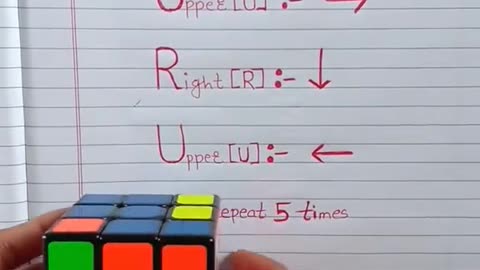 Upper [U] :- →
Right [R] :- ↓
Upper [U] :- ←
epeat 5 times